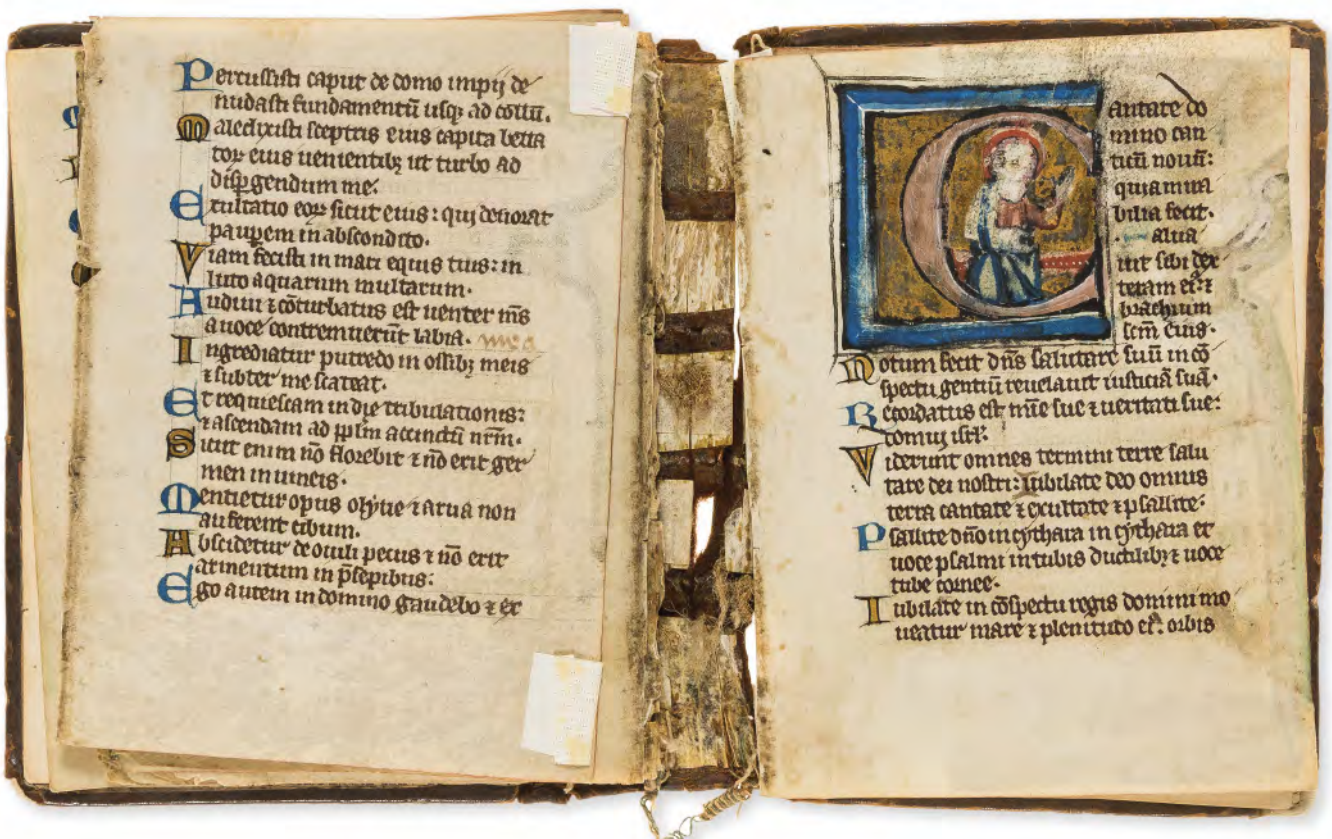 Percussisti caput de domo impij de
nudasti fundamentū usqꝫ ad collū.
Maledixisti sceptris eius capita bella
toꝝ eius uenientibꝫ ut turbo ad
disꝑgendum me.
Exultatio eoꝝ sicut eius: qui deuorat
pauꝑem in abscondito.
Viam fecisti in mari equis tuis: in
luto aquarum multarum.
Audiui ⁊ cōturbatus est uenter ms̄
a uoce contremuerūt labia. mea
Ingrediatur putredo in ossibꝫ meis
⁊ subter me scateat.
Et requiescam in die tribulationis:
⁊ ascendam ad pp̄lm accinctū nr̄m.
Sicut enim nō florebit ⁊ nō erit ger
men in uineis.
Mentietur opus olyue ⁊ arua non
afferent cibum.
Abscidetur de ouili pecus ⁊ nō erit
armentum in p̄sepibus:
Ego autem in domino gaudebo ⁊ ex
Cantate do
mino can
ticū nouū:
quia mira
bilia fecit.
alua
uit sibi dex
teram ei᷒: ⁊
brachium
scm̄ eius.
Notum fecit dn̄s salutare suū in cō
spectu gentiū reuelauit iusticiā suā.
Recordatus est mīe sue ⁊ ueritati sue:
domui isrl̄.
Viderunt omnes termini terre salu
tare dei nostri: iubilate deo omnis
terra cantate ⁊ exultate ⁊ psallite.
Psallite dn̄o in cythara in cythara et
uoce psalmi in tubis ductilibꝫ ⁊ uoce
tube cornee.
Iubilate in cōspectu regis domini mo
ueatur mare ⁊ plenitudo ei᷒: orbis